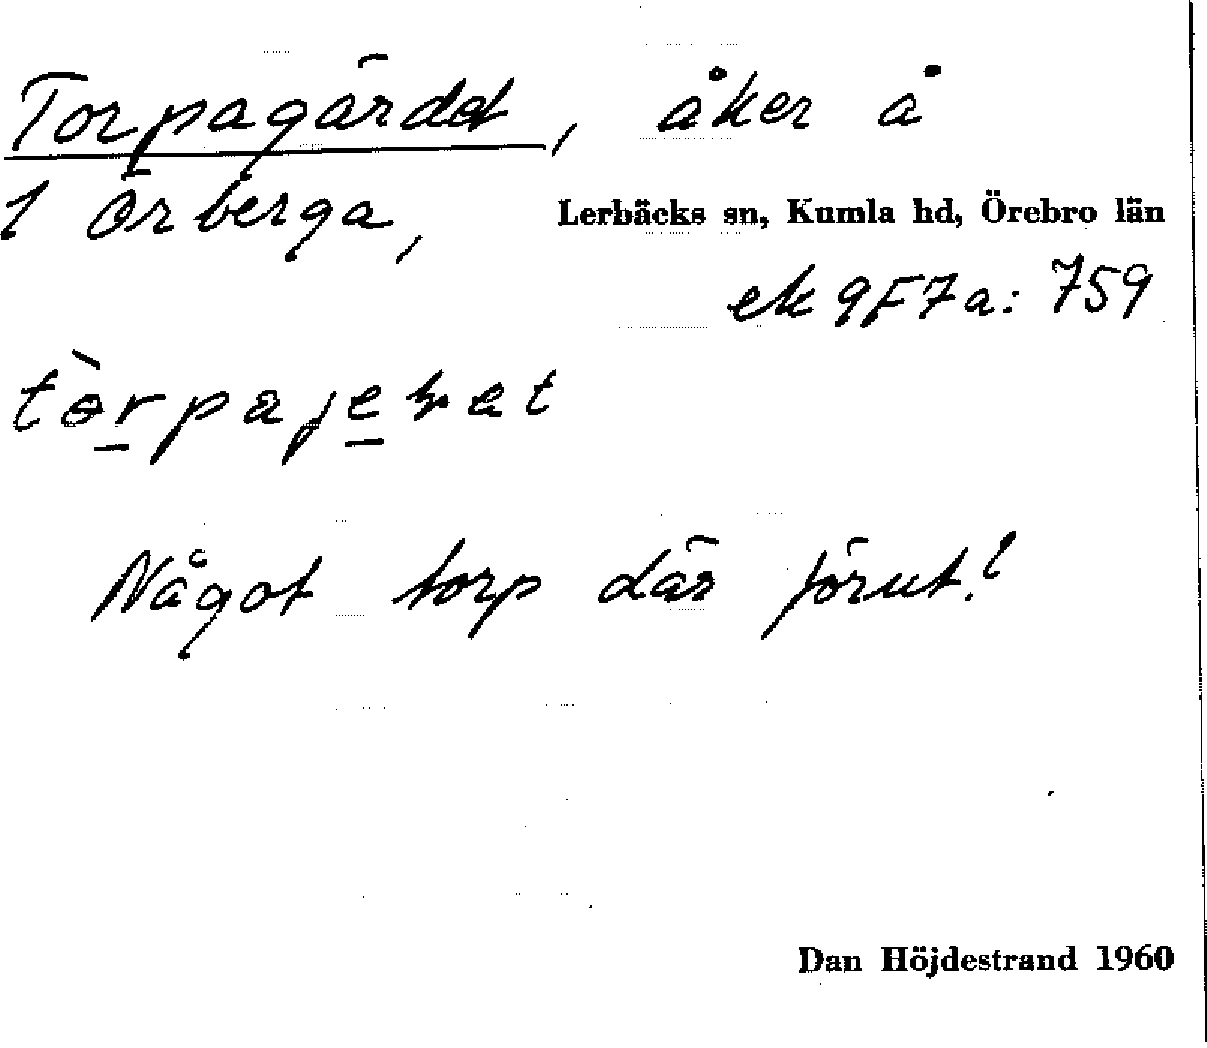 Torpagärdet, åker å
1 Örberga,
Lerbäcks sn, Kumla hd, Örebro län
ek 9F7a: 759
Något torp där förut?
Dan Höjdestrand 1960